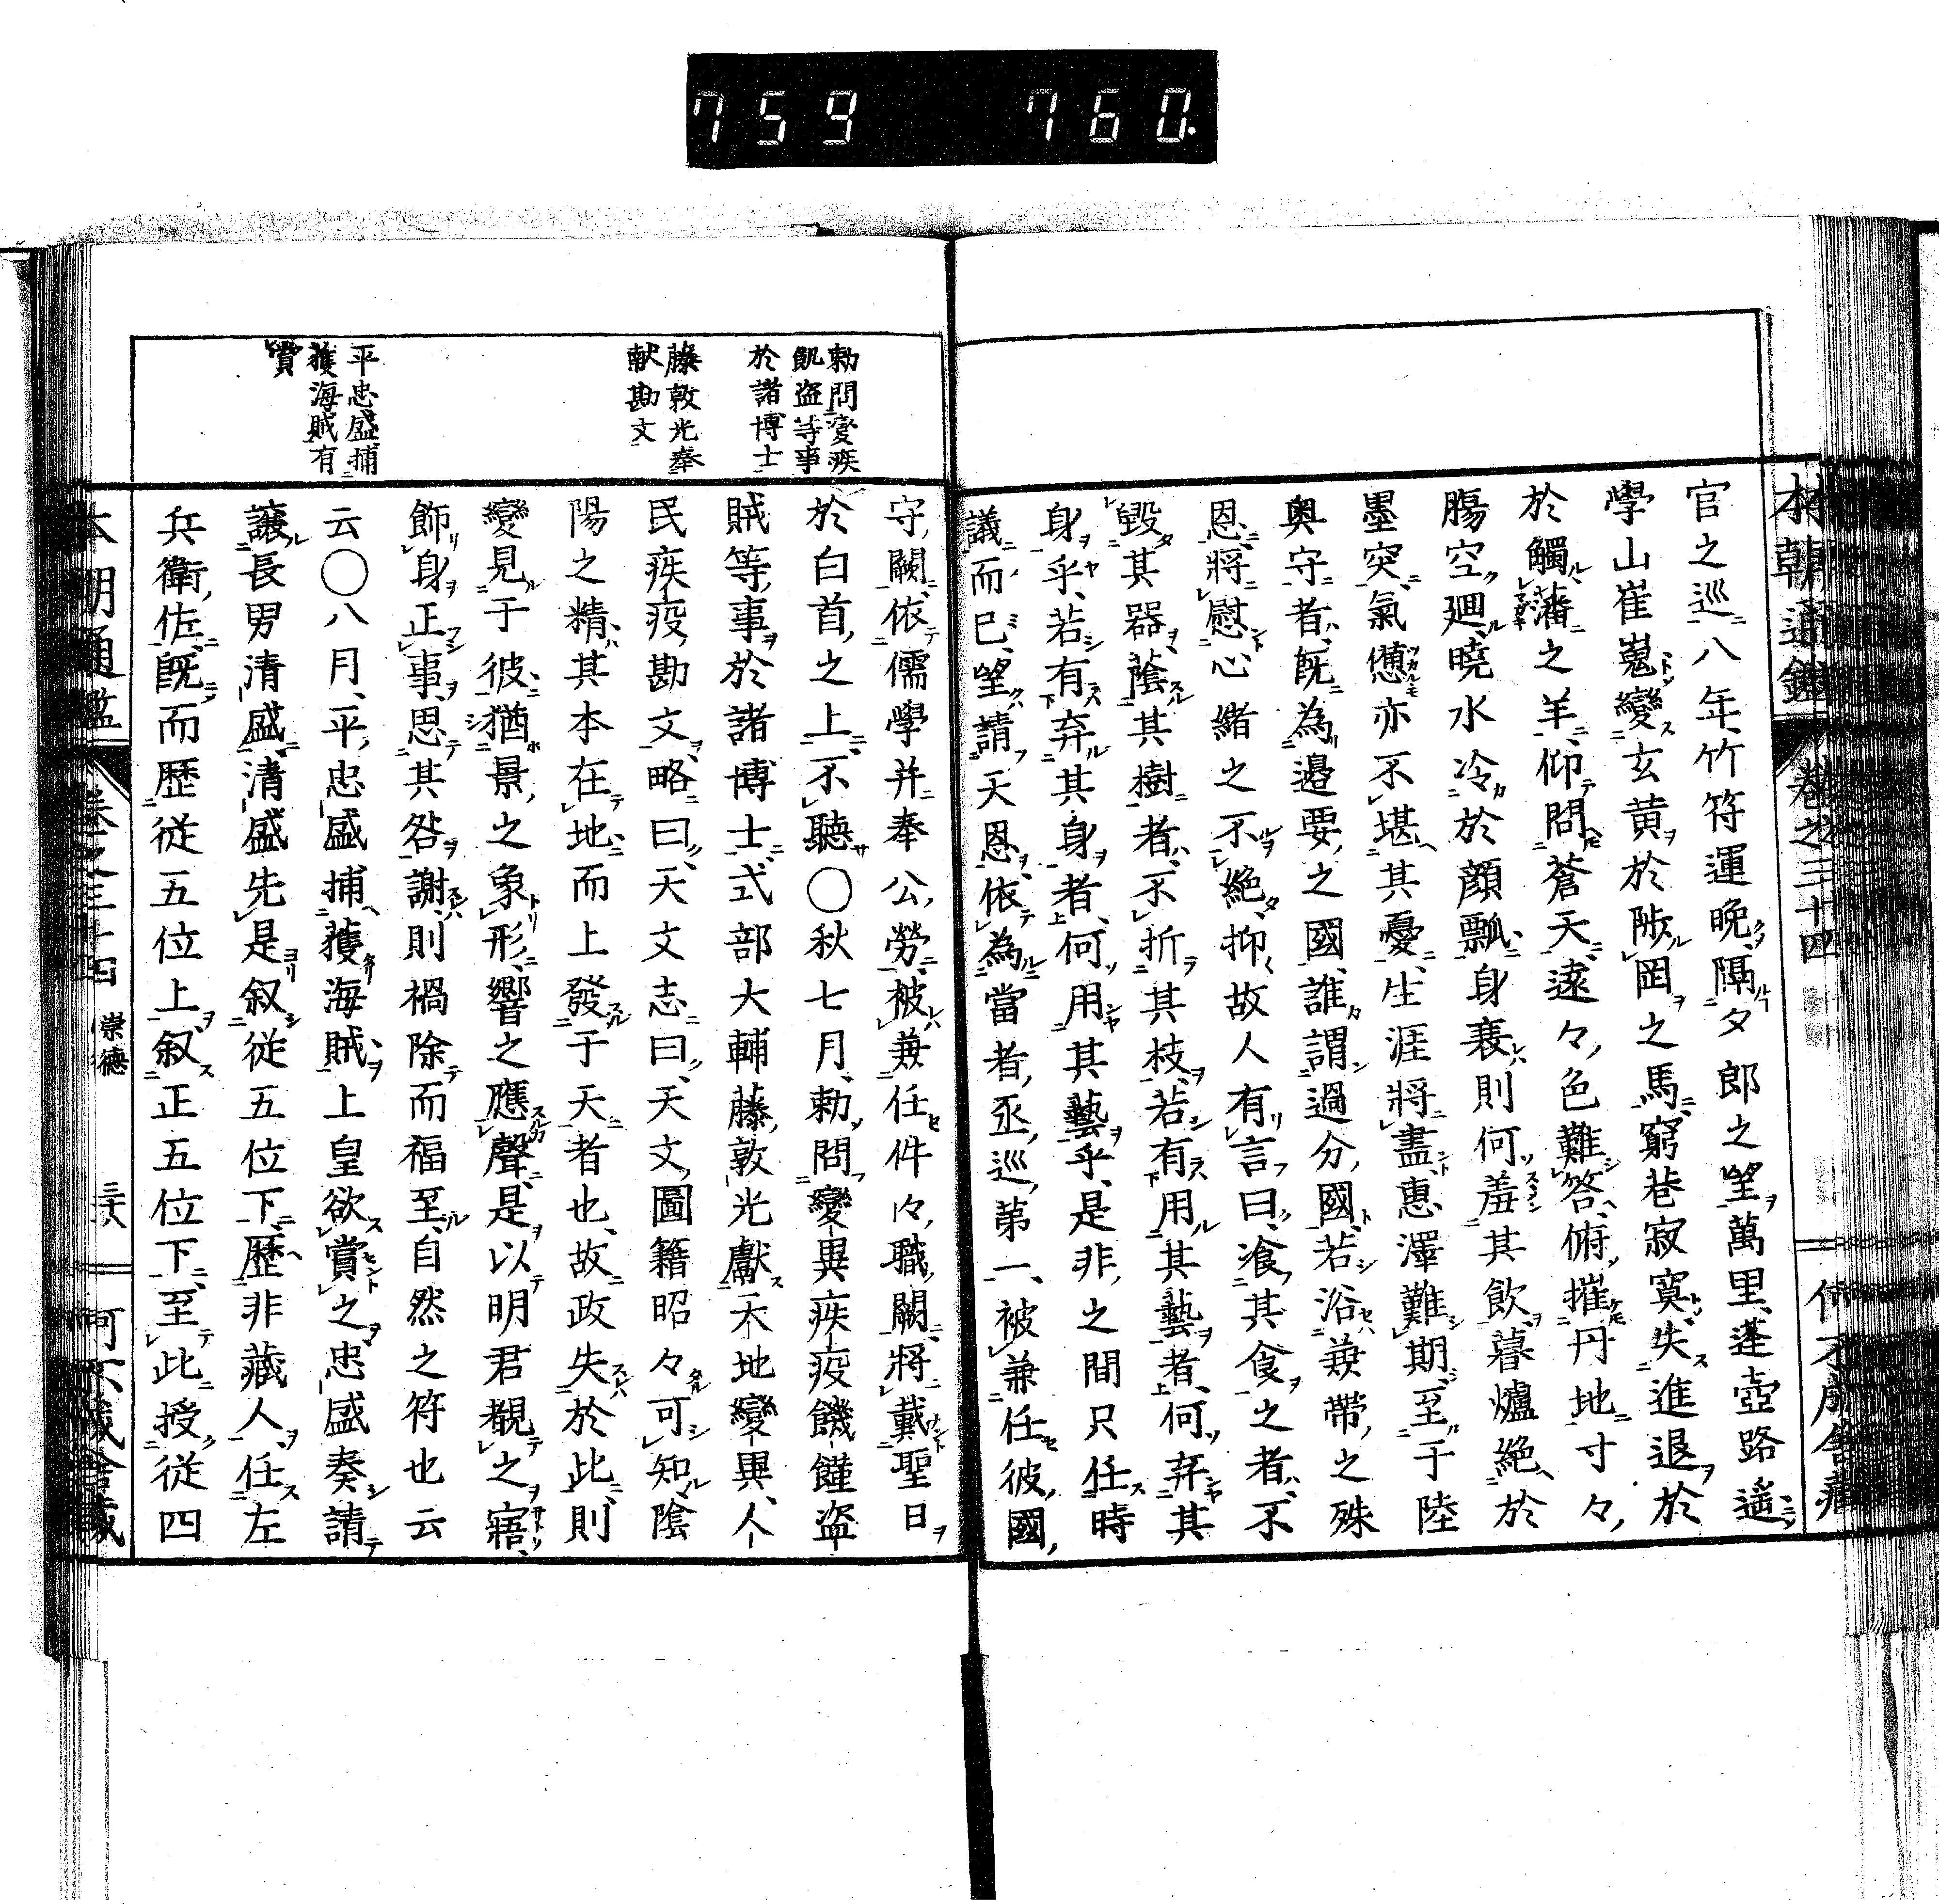 759 760
本朝通鑑 卷之三十四
官之巡八年竹符運晩隔夕郎之望萬里蓬壺路遙
學山崔嵬變玄黄於陟岡之馬窮巷寂寞失進退於
於觸藩之羊仰問蒼天遠々色難答俯摧丹地寸々
腸空廻曉水冷於顔瓢身衰則何羞其飲暮爐絶於
墨突氣憊亦不堪其憂生涯將盡惠澤難期至于陸
奥守者既為邉要之國誰謂過分國若浴兼帶之殊
恩將慰心緒之不絶抑故人有言曰飡其食之者不
毀其器蔭其樹者不折其枝若有用其藝者何弃其
身乎若有弃其身者何用其藝乎是非之間只任時
議而已望請天恩依為當者丞巡第一被兼任彼國
勅問變疾
飢盗等事
於諸博士
藤敦光奉
献勘文
平忠盛捕
獲海賊有
賞
守闕依儒學并奉公勞被兼任件々職闕將戴聖日
於白首之上不聽〇秋七月勅問變異疾疫饑饉盗
賊等事於諸博士式部大輔藤敦光獻天地變異人
民疾疫勘文略曰天文志曰天文圖籍昭々可知陰
陽之精其本在地而上發于天者也故政失於此則
變見于彼猶景之象形響之應聲是以明君覩之寤
飾身正事思其咎謝則禍除而福至自然之符也云
云〇八月平忠盛捕獲海賊上皇欲賞之忠盛奏請
讓長男清盛清盛先是叙従五位下歴非藏人任左
兵衛佐既而歴従五位上叙正五位下至此授従四
本朝通鑑 卷之三十四 崇德